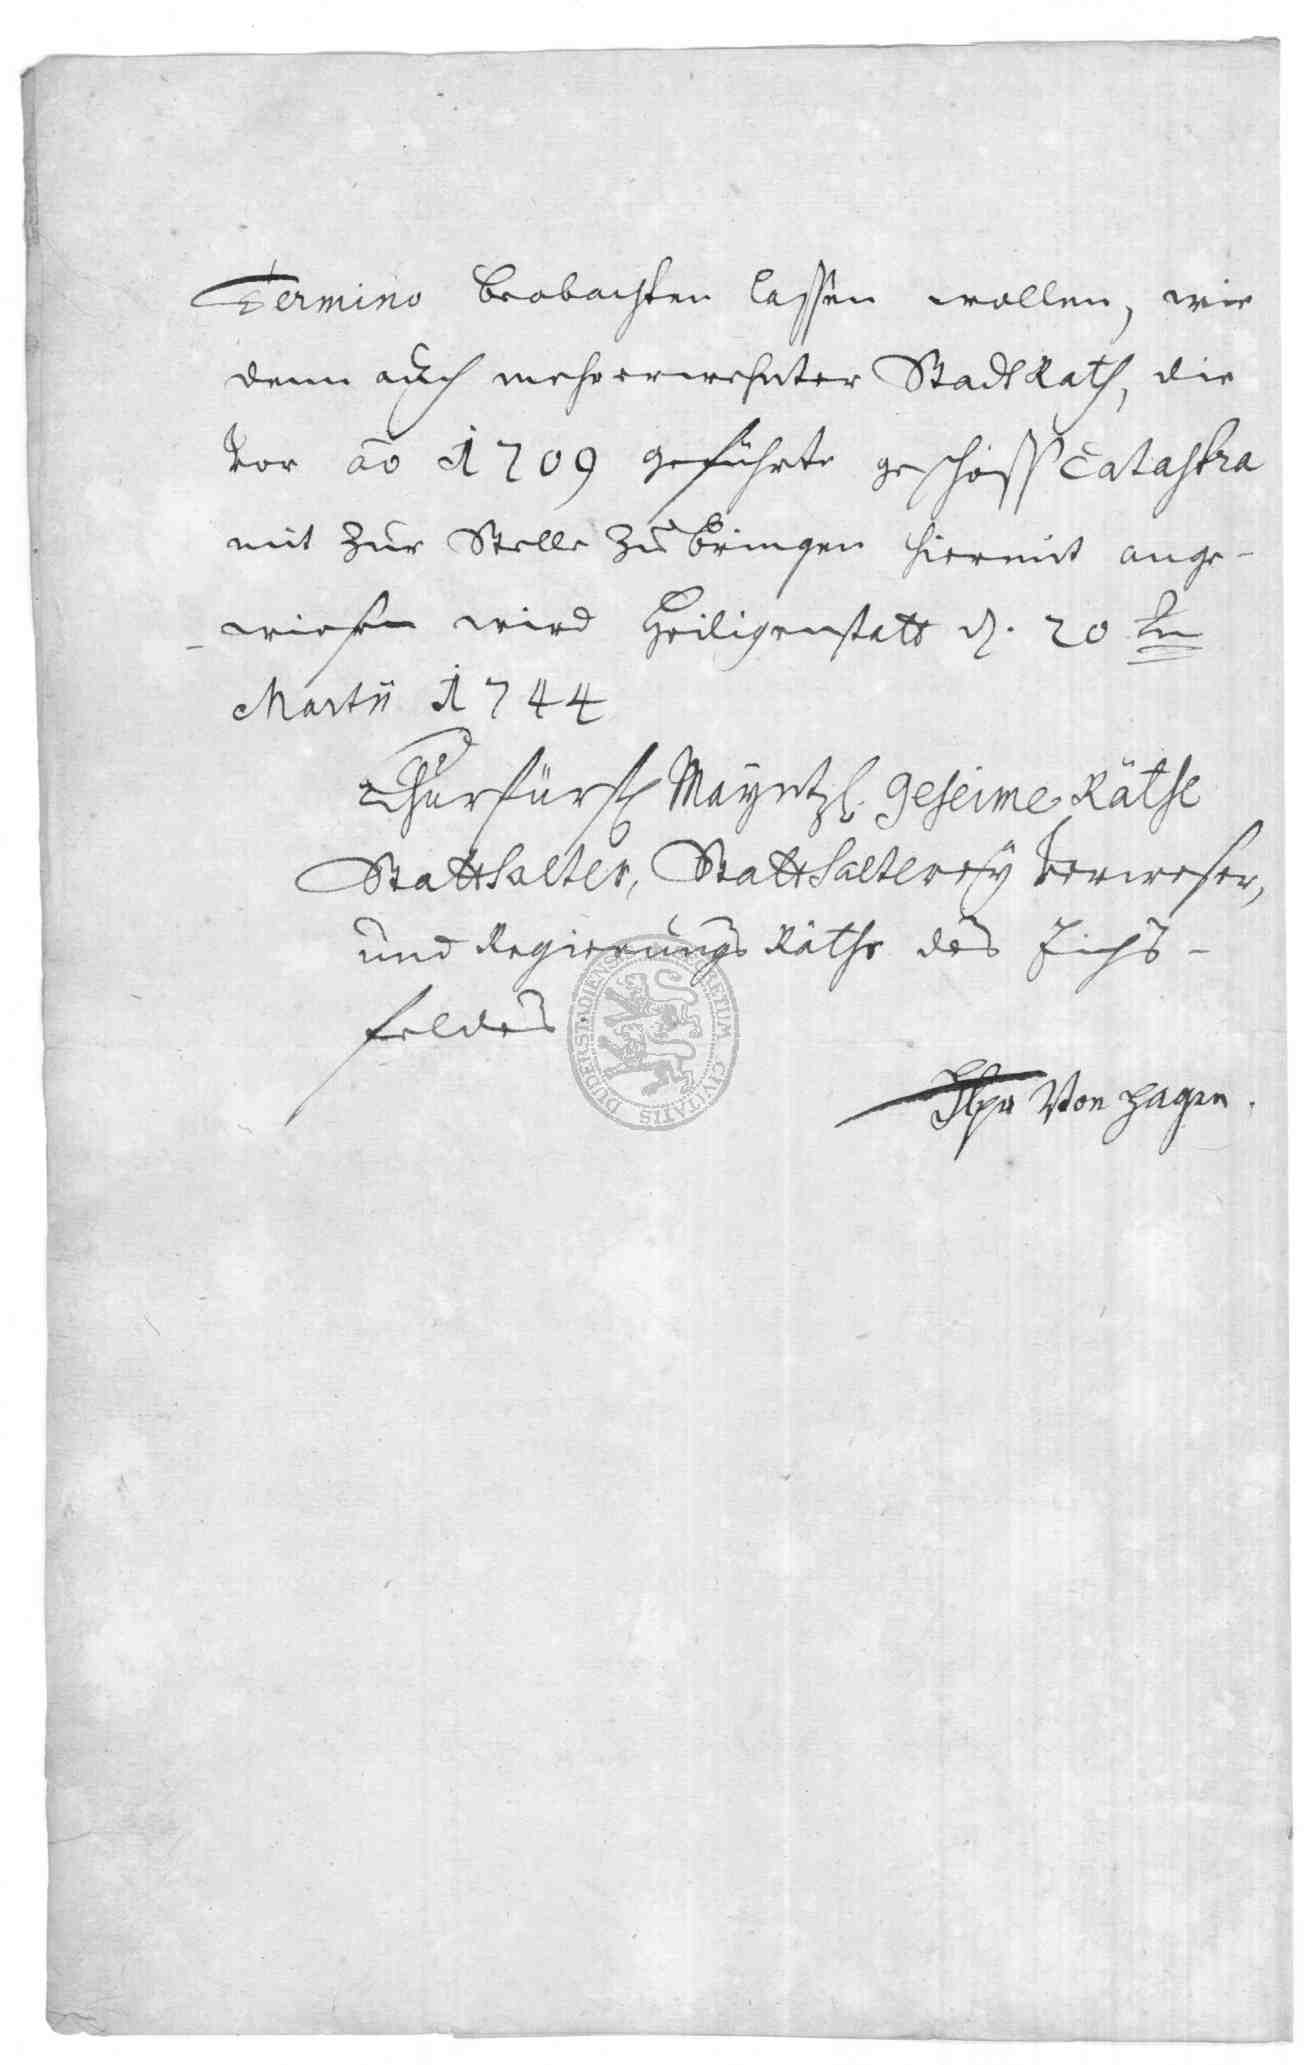 Termino beobachten lassen wollen, wie
denn auch mehrerwehnter Stadt Rath, die
vor ao 1709 geführte geschoss Catastra
mit zur Stelle zu bringen hiermit ange-
wiesen wird Heiligenstatt d. 20 ten
Martii 1744
Churfürstl Mayntzl. geheime Räthe
Statthalter, Statthalterey Verweser,
und Regierungs Räthe des Eichs-
feldes
von Hagen.